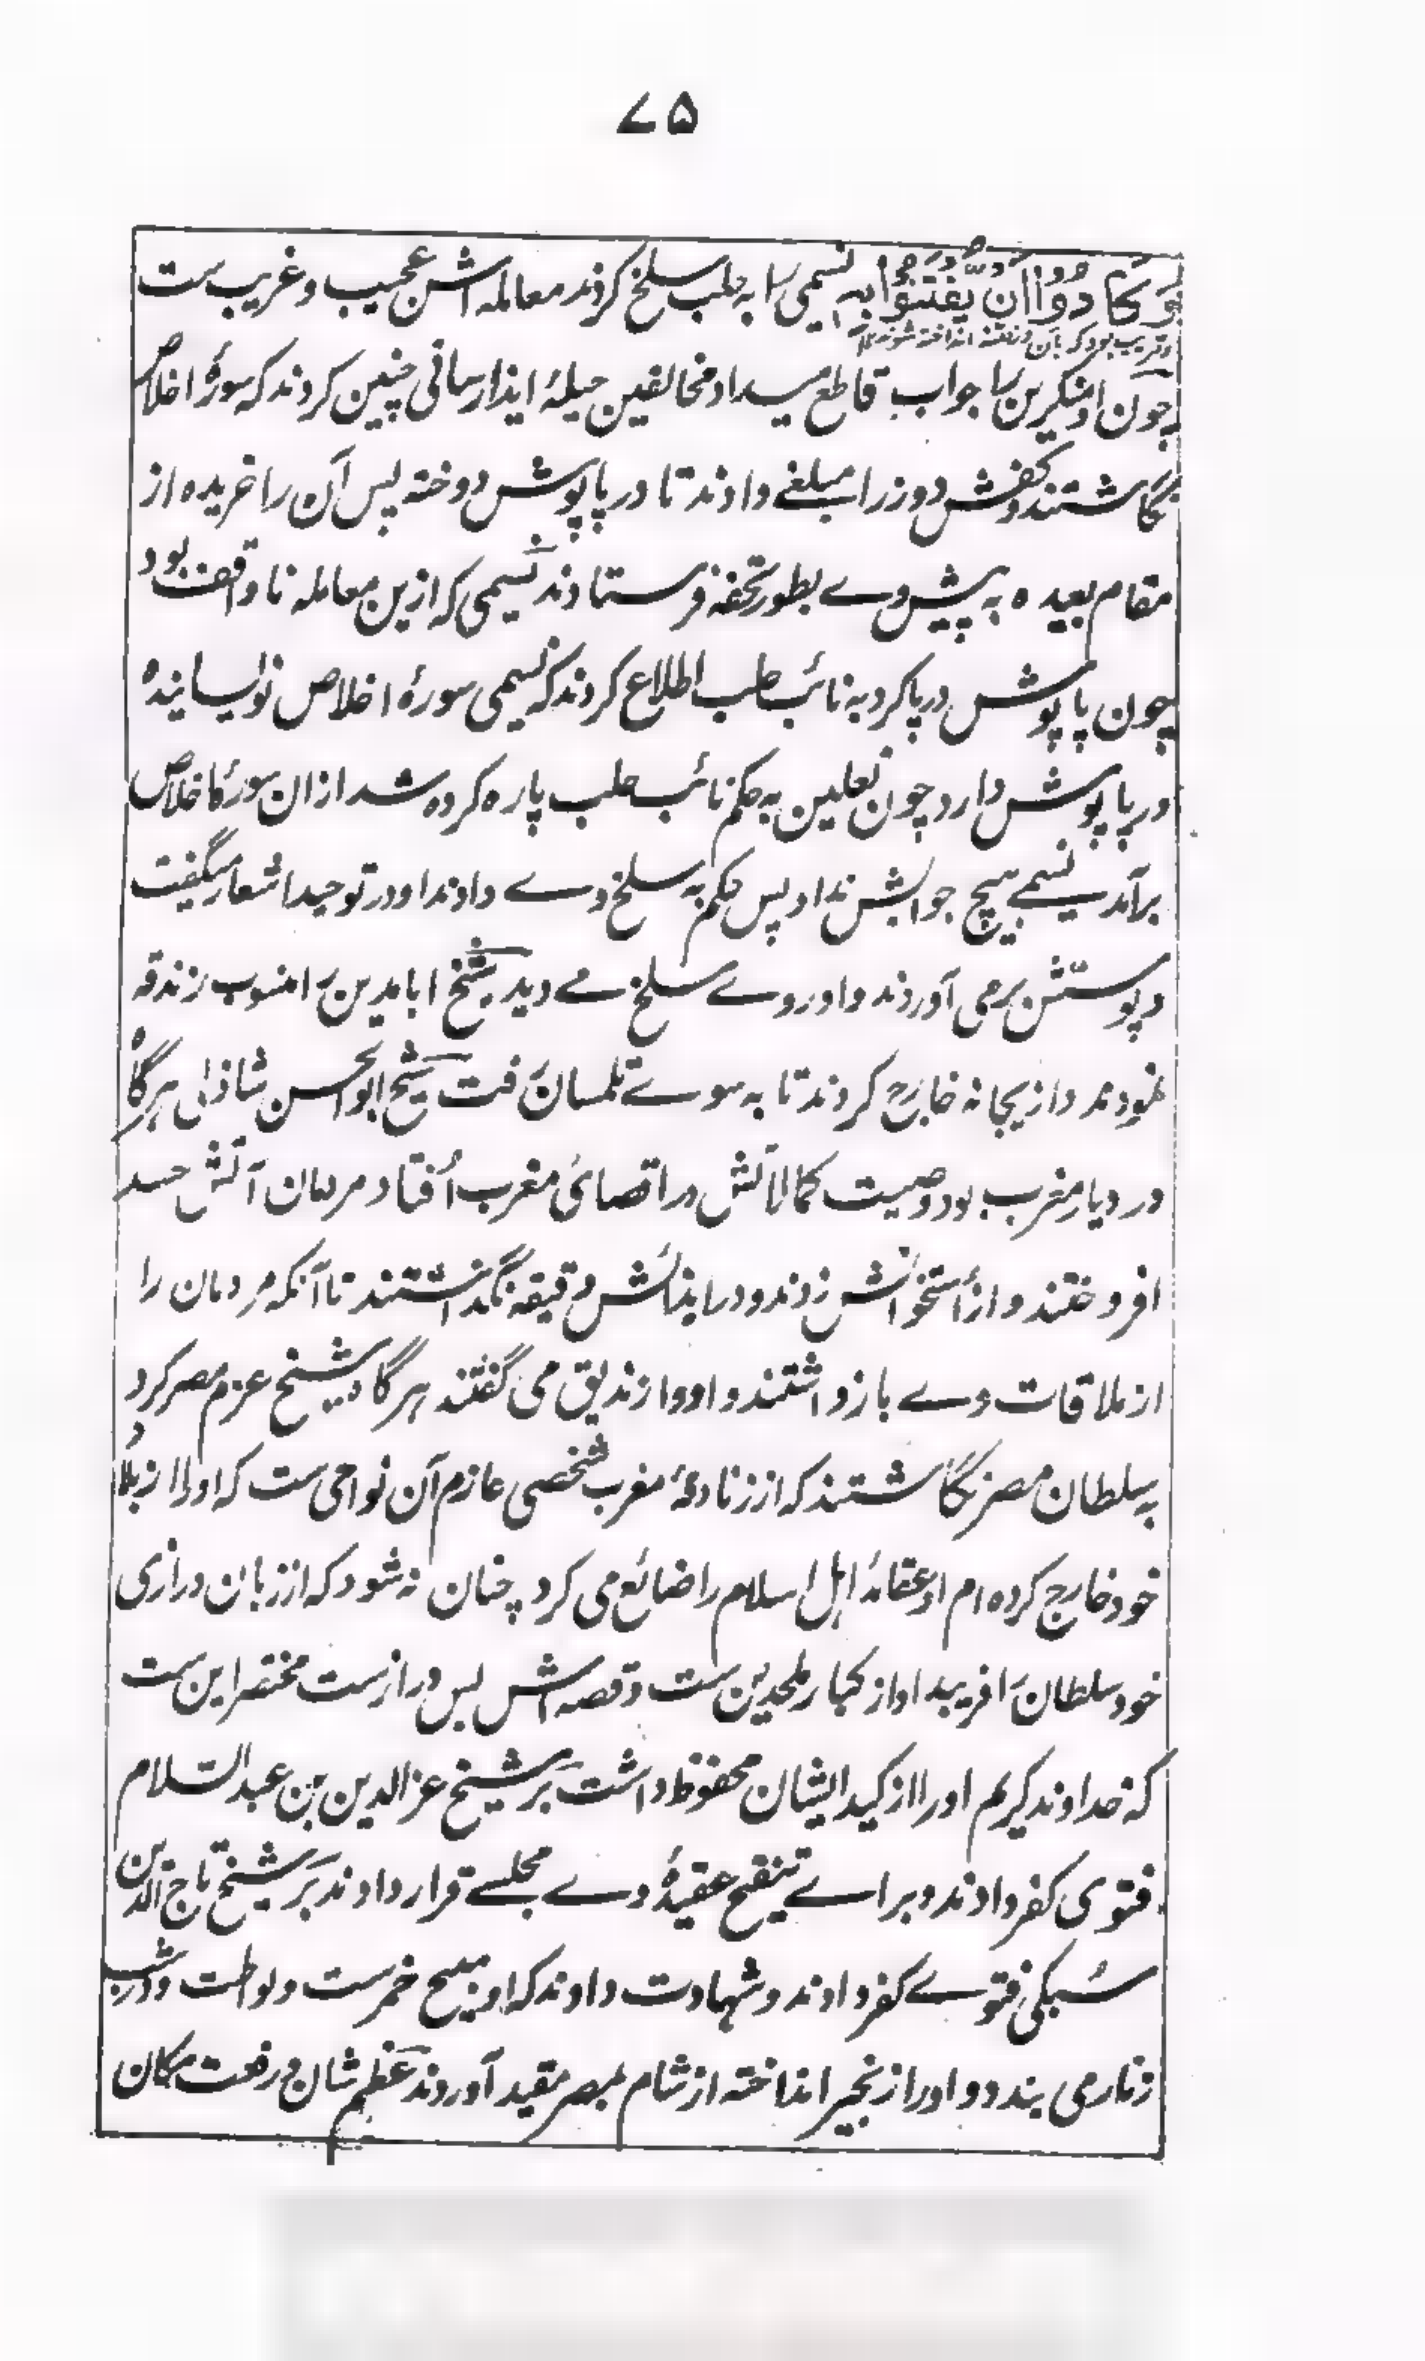 ۷۵
وَ كَادُوْا اَنْ يَّفْتَتِنُوْا بِهٖ نسیمی را به حلب سلخ کردند معامله اش عجیب و غریب ست
و قریب بود که بآن در فتنه انداخته شوند
چون او منکرین را جواب قاطع میداد مخالفین حیلهٔ ایذا رسانی چنین کردند که سورهٔ اخلاص
نگاشتند و کفش دوز را مبلغے دادند تا در پاپوش دوخته پس آن را خریده از
مقام بعیده به پیش وے بطور تحفه فرستادند نسیمی که ازین معامله ناواقف بود
چون پاپوش درپا کرد به نائب حلب اطلاع کردند که نسیمی سورهٔ اخلاص نویسانیده
در پاپوش دارد چون نعلین به حکم نائب حلب پاره کرده شد ازان سورهٔ اخلاص
برآمد نسیمے هیچ جوابش نداد پس حکم به سلخ وے دادند او در توحید اشعار میگفت
و پوستش برمی آوردند و او روے سلخ مے دید شیخ ابامدین را منسوب بزندقه
نمودند و از بجانه خارج کردند تا به سوے تلمسان رفت شیخ ابوالحسن شاذلی هرگاه
در دیار مغرب بود وصیت کمالاتش در اقصائ مغرب اُفتاد مردمان آتش حسد
افروختند و از اُستخوانش زدند و در ایذائش دقیقه نگذاشتند تا آنکه مردمان را
از ملاقات وے باز داشتند و او را زندیق می گفتند هرگاه شیخ عزم مصر کرد
به سلطان مصر نگاشتند که از زنادقهٔ مغرب شخصی عازم آن نواحی ست که او را از بلاد
خود خارج کرده ام او عقائد اهل اسلام را ضائع می کرد چنان نه شود که از زبان درازی
خود سلطان را فریبد او از کبار ملحدین ست و قصه اش بس دراز ست مختصر این ست
که خداوند کریم او را از کید ایشان محفوظ داشت بر شیخ عزالدین بن عبدالسلام
فتوی کفر دادند و براے تنقیح عقیدهٔ وے مجلسے قرار دادند بر شیخ تاج الدین
سُبکی فتوے کفر دادند و شهادت دادند که او مبیح خمر ست و لواطت و در شب
زنار می بندد و او را زنجیر انداخته از شام بمصر مقید آوردند عظم شان و رفعت مکان